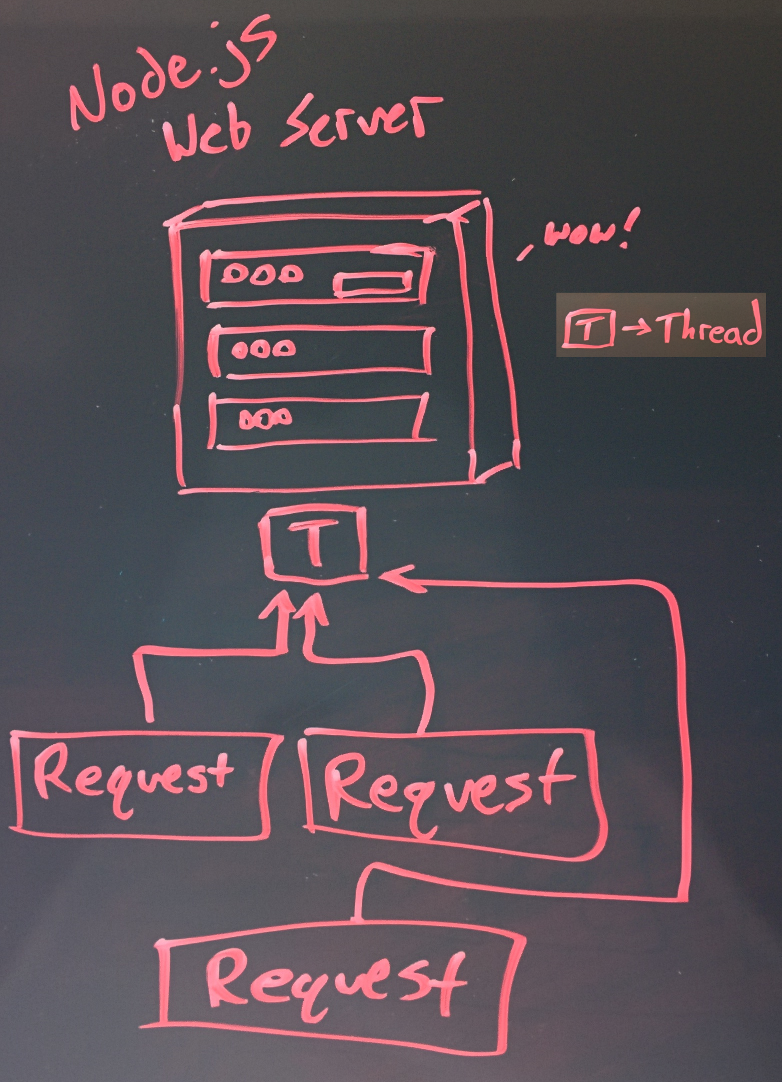 Node.js
Web Server
, wow!
T → Thread
T
Request
Request
Request